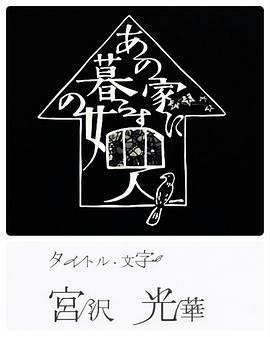 あの家に
暮らす
四人
の女
タイトル・文字
宮沢 光華